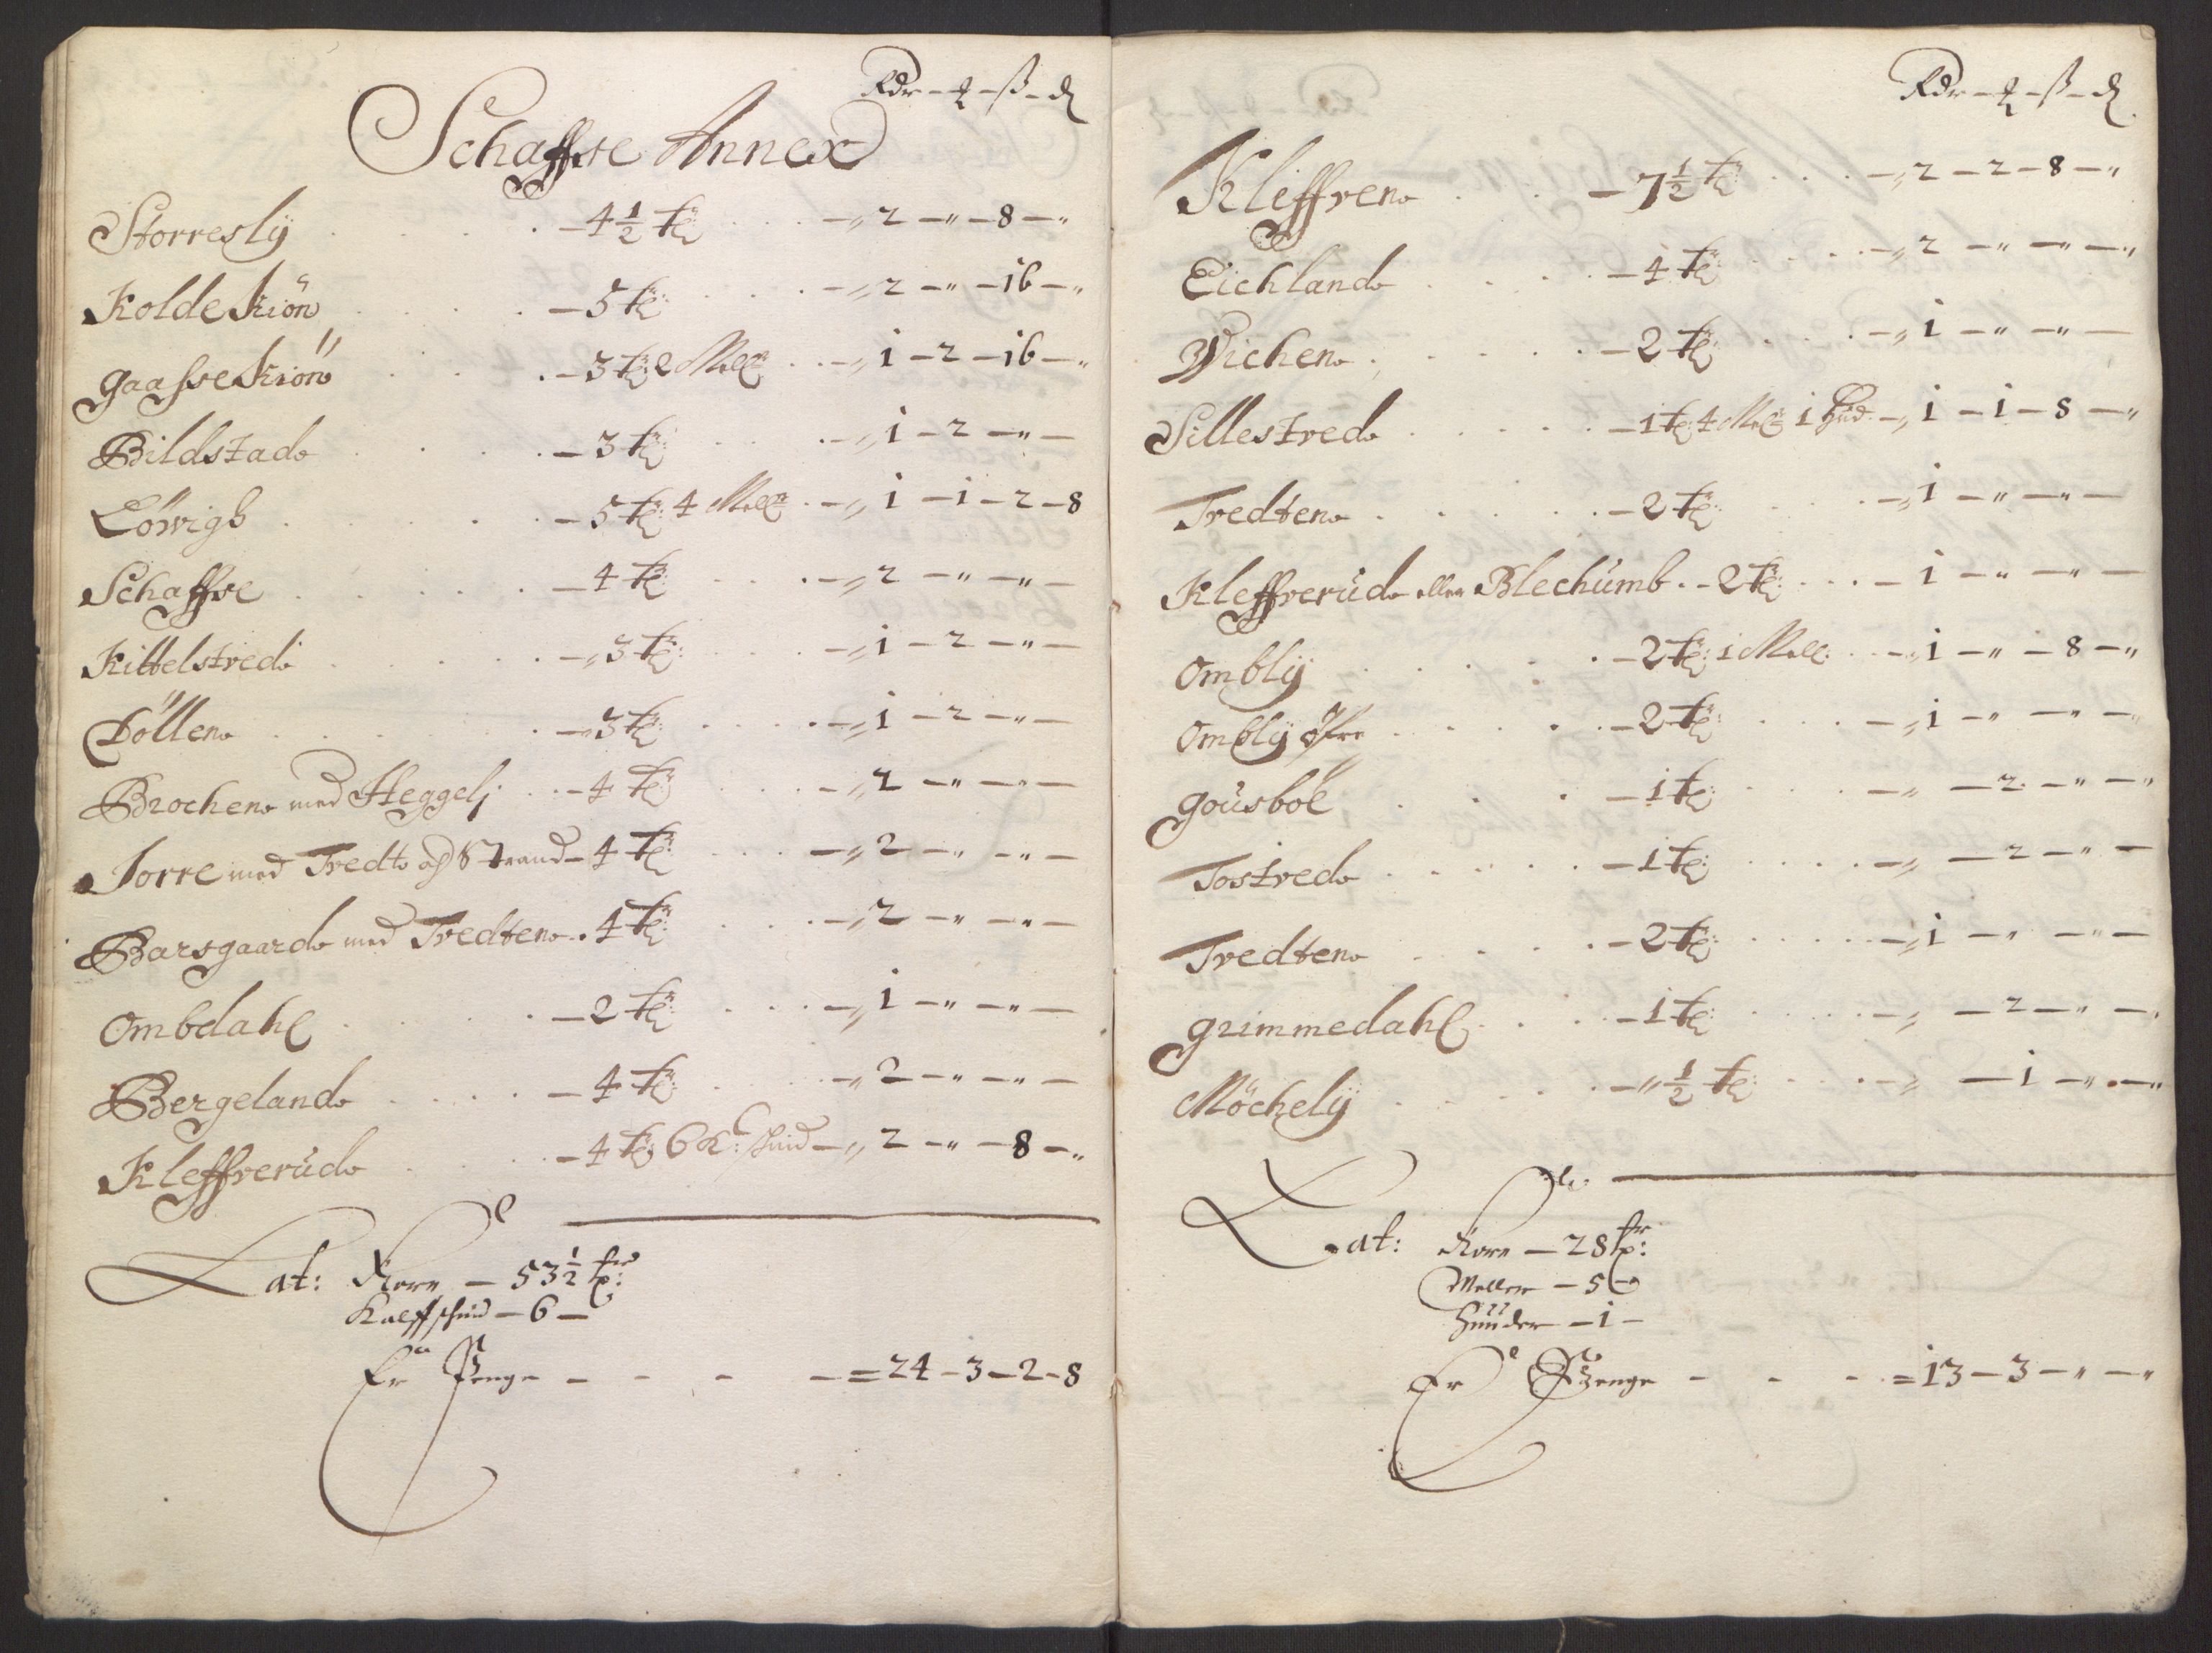 Rdr - - ß - d
Schaffse Annex
Storreslÿ - 4 1/2 tr: - „ 2 - „ - 8 - „
Kolde Kiön - 5 tr: - „ 2 - „ - 16 - „
Gaasse Kiön - 3 tr: 2 Mell: - „ 1 - 2 - 16 - „
Bildstad - 3 tr: - „ 1 - 2 - „ -
Löwigb - 5 tr: 4 Mell: - „ 1 - 1 - 2 - 8
Schaffse - 4 tr: - „ 2 - „ - „ -
Kittelstred - „ 3 tr: - „ 1 - 2 - „ -
Döllen - 3 tr: - „ 1 - 2 - „ -
Brochen med Heggelj - 4 tr: - „ 2 - „ - „ -
Torre med Tredt og Strand - 4 tr: - „ 2 - „ - „ -
Barsgaard med Tredten - 4 tr: - „ 2 - „ - „ -
Ombdahl - 2 tr: - „ 1 - „ - „ -
Bergeland - 4 tr: - „ 2 - „ - „ -
Kleffverud - 4 tr: 6 K: schind - „ 2 - „ - 8 - „
Lat: Korn - 53 1/2 tr:
Kalffschind - 6 -
Er Penge - - - - = 24 - 3 - 2 - 8
Rdr - - ß - d
Kliffven - 7 1/2 tr: - „ 2 - 2 - 8 - „
Eichland - 4 tr: - „ 2 - „ - „ - „
Wichen - 2 tr: - „ 1 - „ - „ -
Sillestred - 1 tr: 4 Mell: 1 hud - „ 1 - 1 - 8 - „
Tredten - 2 tr: - „ 1 - „ - „ -
Kleffverud eller Blechumb - 2 tr: - 1 - „ - „ -
Omblÿ - 2 tr: 1 Mell: - „ 1 - „ - 8 - „
Omblÿ øfre - 2 tr: - „ 1 - „ - „ - „
Gousböl - 1 tr: - „ - 2 - „ - „
Tostred - 1 tr: - „ - 2 - „ -
Tredten - 2 tr: - „ 1 - „ - „ -
Grimmedahl - 1 tr: - „ - 2 - „ - „
Möchelÿ - „ 1/2 tr: - „ - 1 - „ - „
Lat: Korn - 28 tr:
Meller - 5 -
Huuder - 1 -
Er Penge - - - = 13 - 3 - „ - „